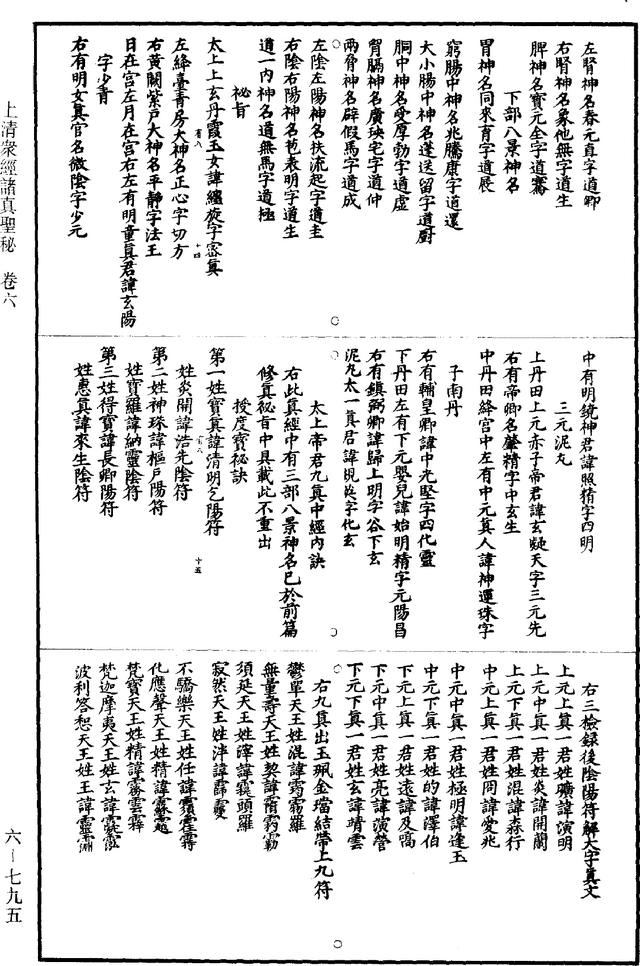 左腎神名春元真字道卿
右腎神名象他無字道生
脾神名寶元全字道騫
下部八景神名
胃神名同來育字道展
窮腸中神名兆騰康字道還
大小腸中神名蓬送留字道廚
胴中神名受厚勃字道虛
胷膈神名廣瑛宅字道仲
兩脅神名辟假馬字道成
左陰左陽神名扶流起字道圭
右陰右陽神名苞表明字道生
道一內神名道無馬字道極
祕旨
太上上玄丹霞玉女諱纏旋字密真
左絳臺青房大神名正心字切方
右黃闕紫戶大神名平靜字法王
日在宮左月在宮右左有明童真君諱玄陽
字少青
右有明女真官名微陰字少元
中有明鏡神君諱照精字四明
三元泥丸
上丹田上元赤子帝君諱玄凝天字三元先
右有帝卿名肇精字中玄生
中丹田絳宮中左有中元真人諱神運珠字
子南丹
右有輔皇卿諱中光堅字四化靈
下丹田左有下元嬰兒諱始明精字元陽昌
右有鎮弼卿諱歸上明字谷下玄
泥丸太一真君諱規英字化玄
太上帝君九真中經內訣
右此真經中有三部八景神名已於前篇
修真祕旨中具載此不重出
授度寶祕訣
第一姓寶真諱清明乞陽符
姓炎開諱浩先陰符
第二姓神珠諱樞戶陽符
姓寶羅諱納靈陰符
第三姓得寶諱長卿陽符
姓惠真諱來生陰符
右三檢錄後陰陽符解大字真文
上元上真一君姓曠諱演明
上元中真一君姓炎諱開蘭
上元下真一君姓混諱森行
中元上真一君姓罔諱愛兆
中元中真一君姓極明諱逢玉
中元下真一君姓的諱澤伯
下元上真一君姓遠諱及啇
下元中真一君姓亮諱演營
下元下真一君姓玄諱靖雲
右九真出玉珮金璫結帶上九符
鬱單天王姓混諱霐霧羅
無量壽天王姓契諱霤霧勒
須延天王姓澤諱頭羅
寂然天王姓泮諱
不驕樂天王姓任諱
化應聲天王姓精諱
梵寶天王姓精諱
梵迦摩夷天王姓玄諱
波利答惒天王姓王諱
上清衆經諸真聖秘 卷六
六－七九五